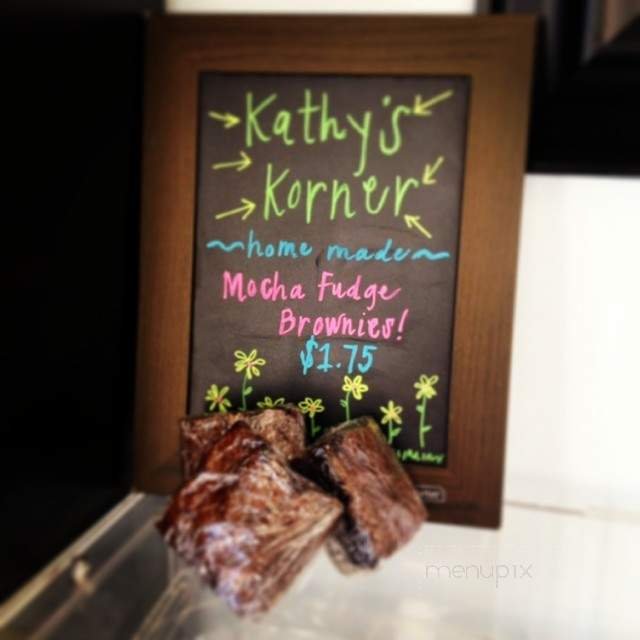 Kathy's
Korner
~home made~
Mocha Fudge
Brownies!
$1.75
menupix